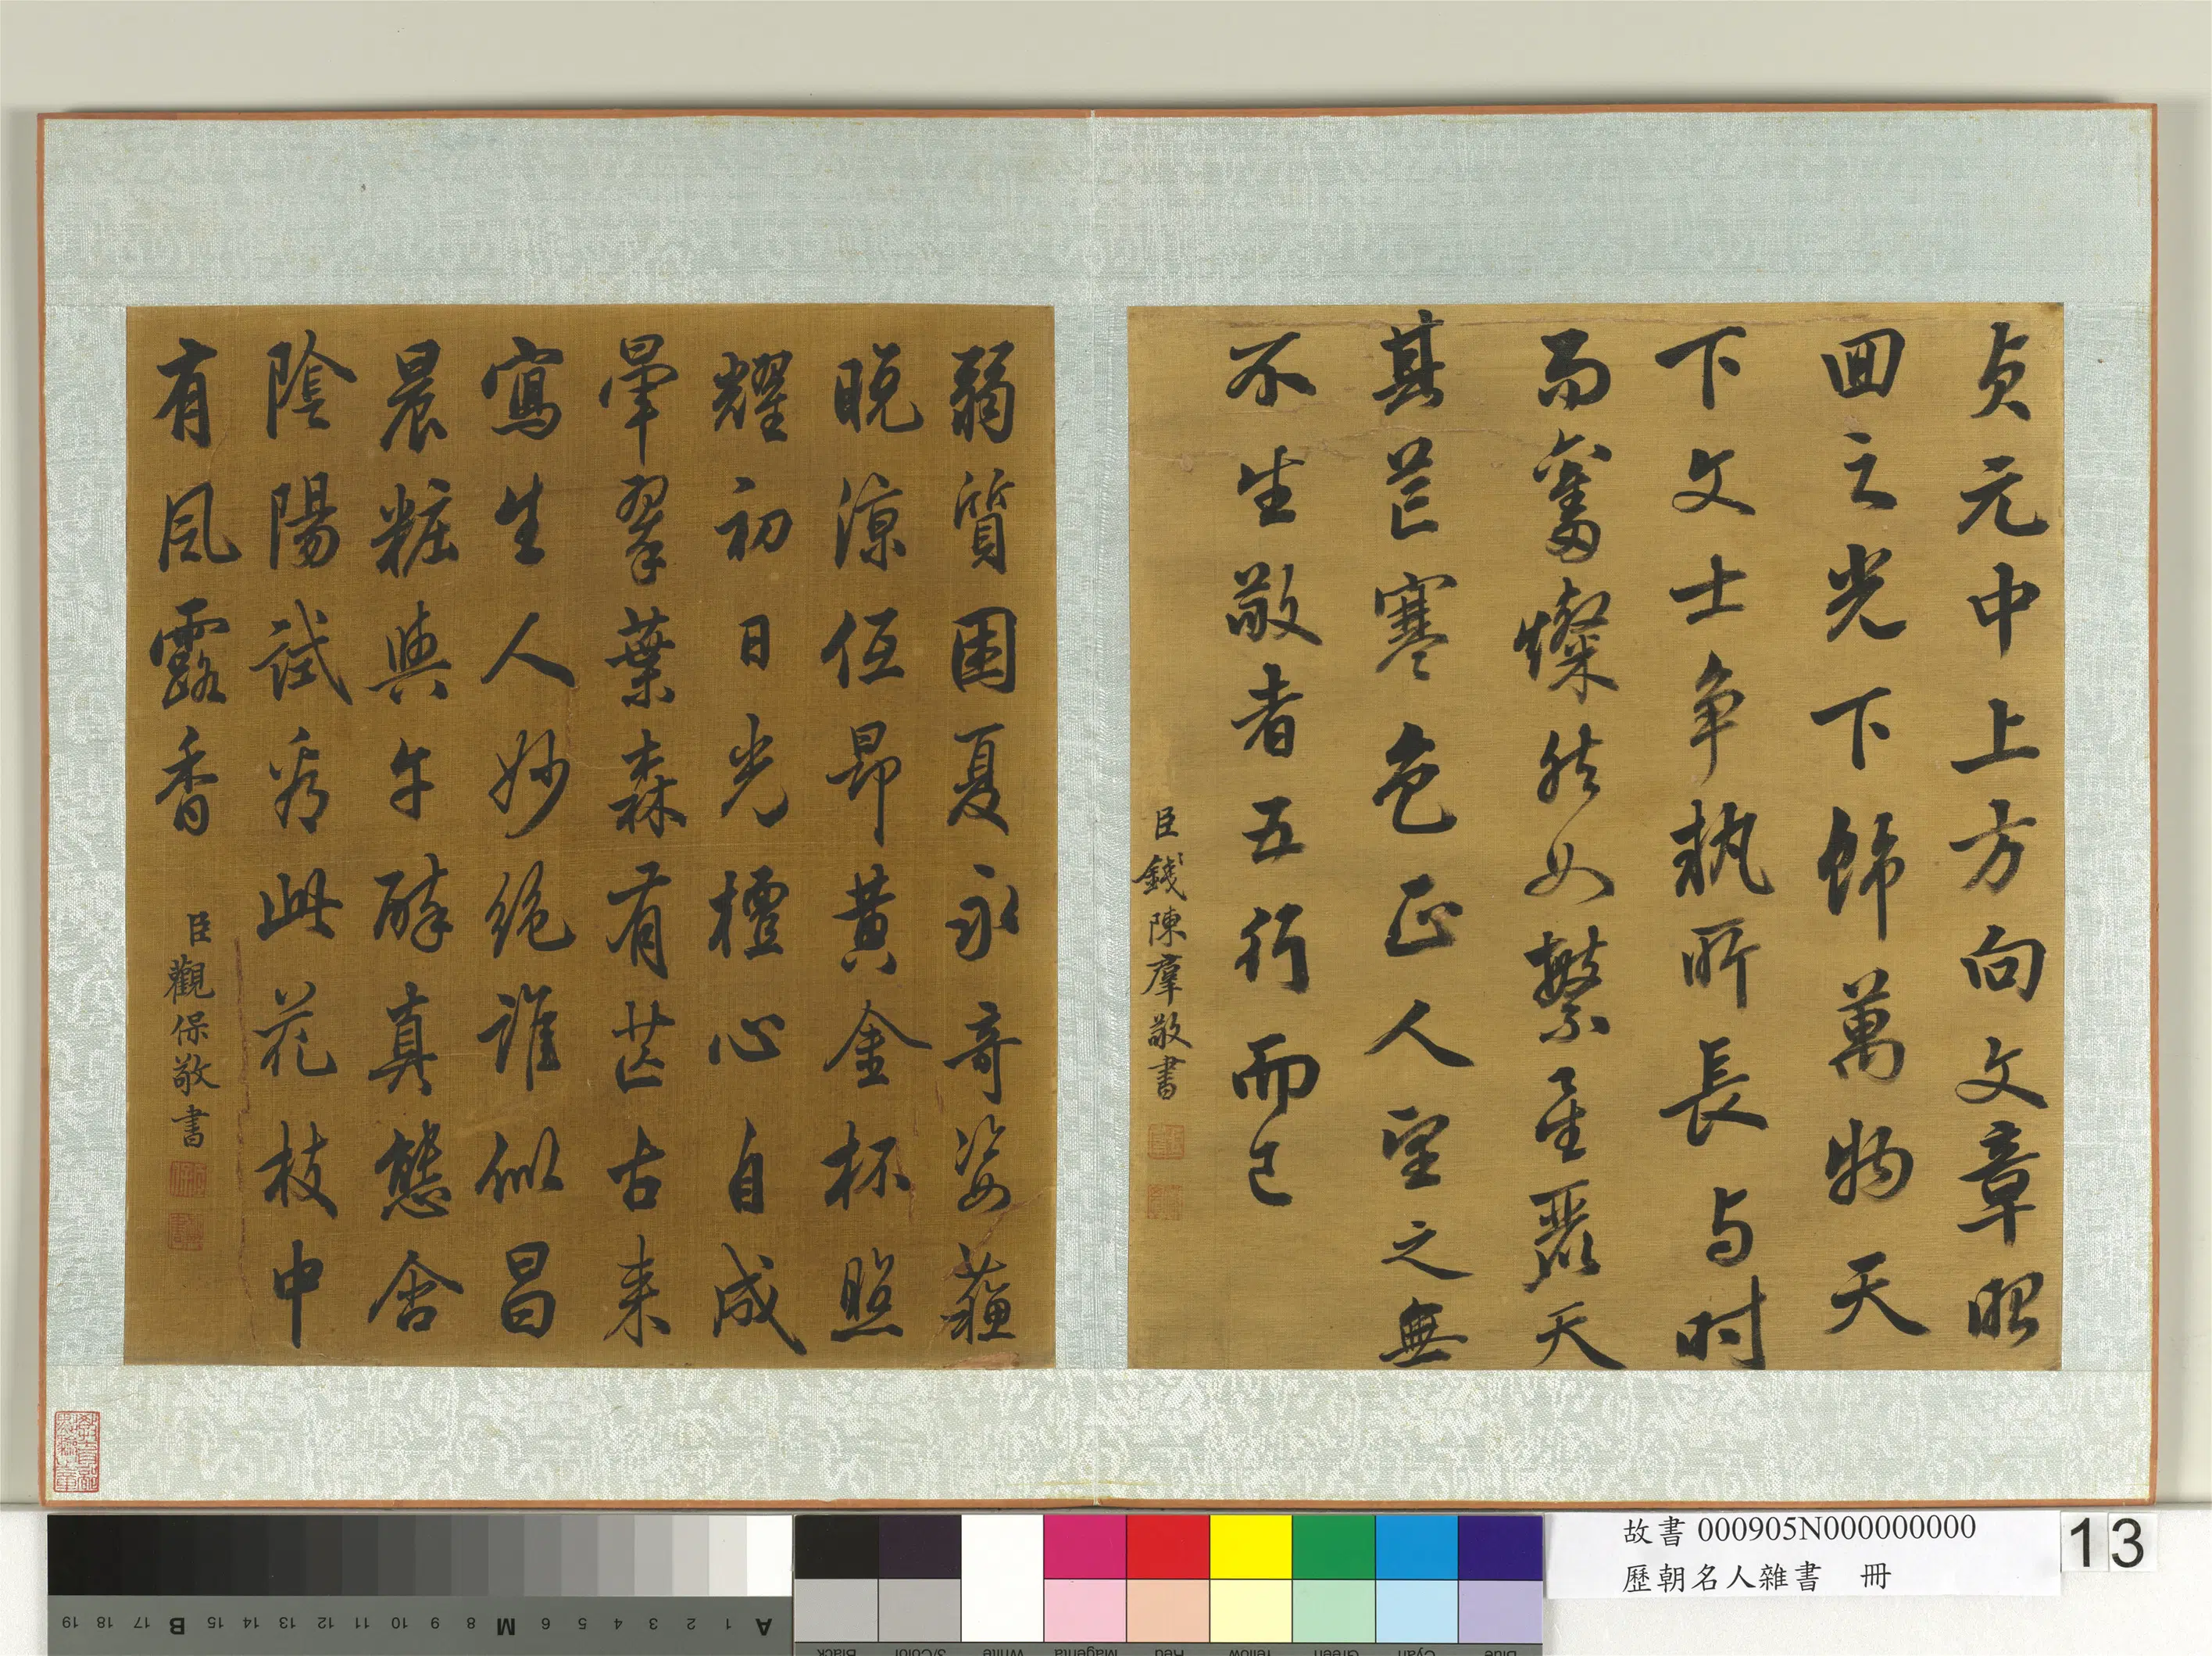 貞元中上方向文章昭
回之光下飾萬物天
下文士争執所長与时
而奮燦然如繁星麗天
其芒寒色正人望之無
不生敬者五行而已
臣錢陳羣敬書
弱質困夏永奇姿蘓
晚涼低昂黃金杯照
耀初日光檀心自成
暈翠葉森有芒古来
寫生人妙绝誰似昌
晨粧與午醉真態含
陰陽試看此花枝中
有風露香
臣觀保敬書
故書 000905N000000000
歷朝名人雜書 冊
13
A 1 2 3 4 5 6 M 8 9 10 11 12 13 14 15 B 17 18 19
Black 3/Color White Magenta Red Yellow Green Cyan Blue